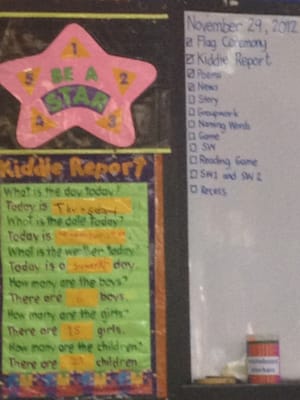 1
2
3
4
5
BE A
STAR
Kiddie Report
What is the day today?
Today is Thursday
What is the date today?
Today is
What is the weather today?
Today is a day.
How many are the boys?
There are boys.
How many are the girls?
There are 15 girls.
How many are the children?
There are children
November 29, 2012
Flag Ceremony
Kiddie Report
Poems
News
Story
Groupwork
Naming Words
Game
SW
Reading Game
SW1 and SW 2
Recess
whiteboard
markers